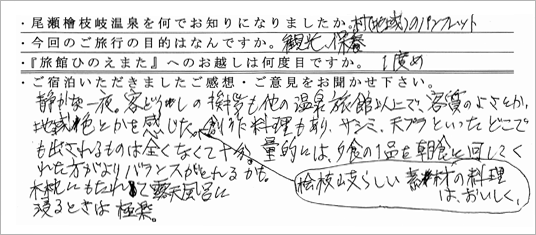 ・尾瀬檜枝岐温泉を何でお知りになりましたか。村(地域)のパンフレット
・今回のご旅行の目的はなんですか。観光、保養
・『旅館ひのえまた』へのお越しは何度目ですか。1度め
・ご宿泊いただきましたご感想・ご意見をお聞かせ下さい。
静かな一夜。客どうしの挨拶も他の温泉旅館以上で、客質のよさとか、
地域色とかを感じた。創作料理もあり、サシミ、天プラといったどこで
も出されるものは全くなくて十分。量的には、夕食の1品を朝食に回してく
れた方がよりバランスがとれるかも。
木枕にもたれて露天風呂に
浸るときは極楽。
桧枝岐らしい素材の料理
は、おいしく、